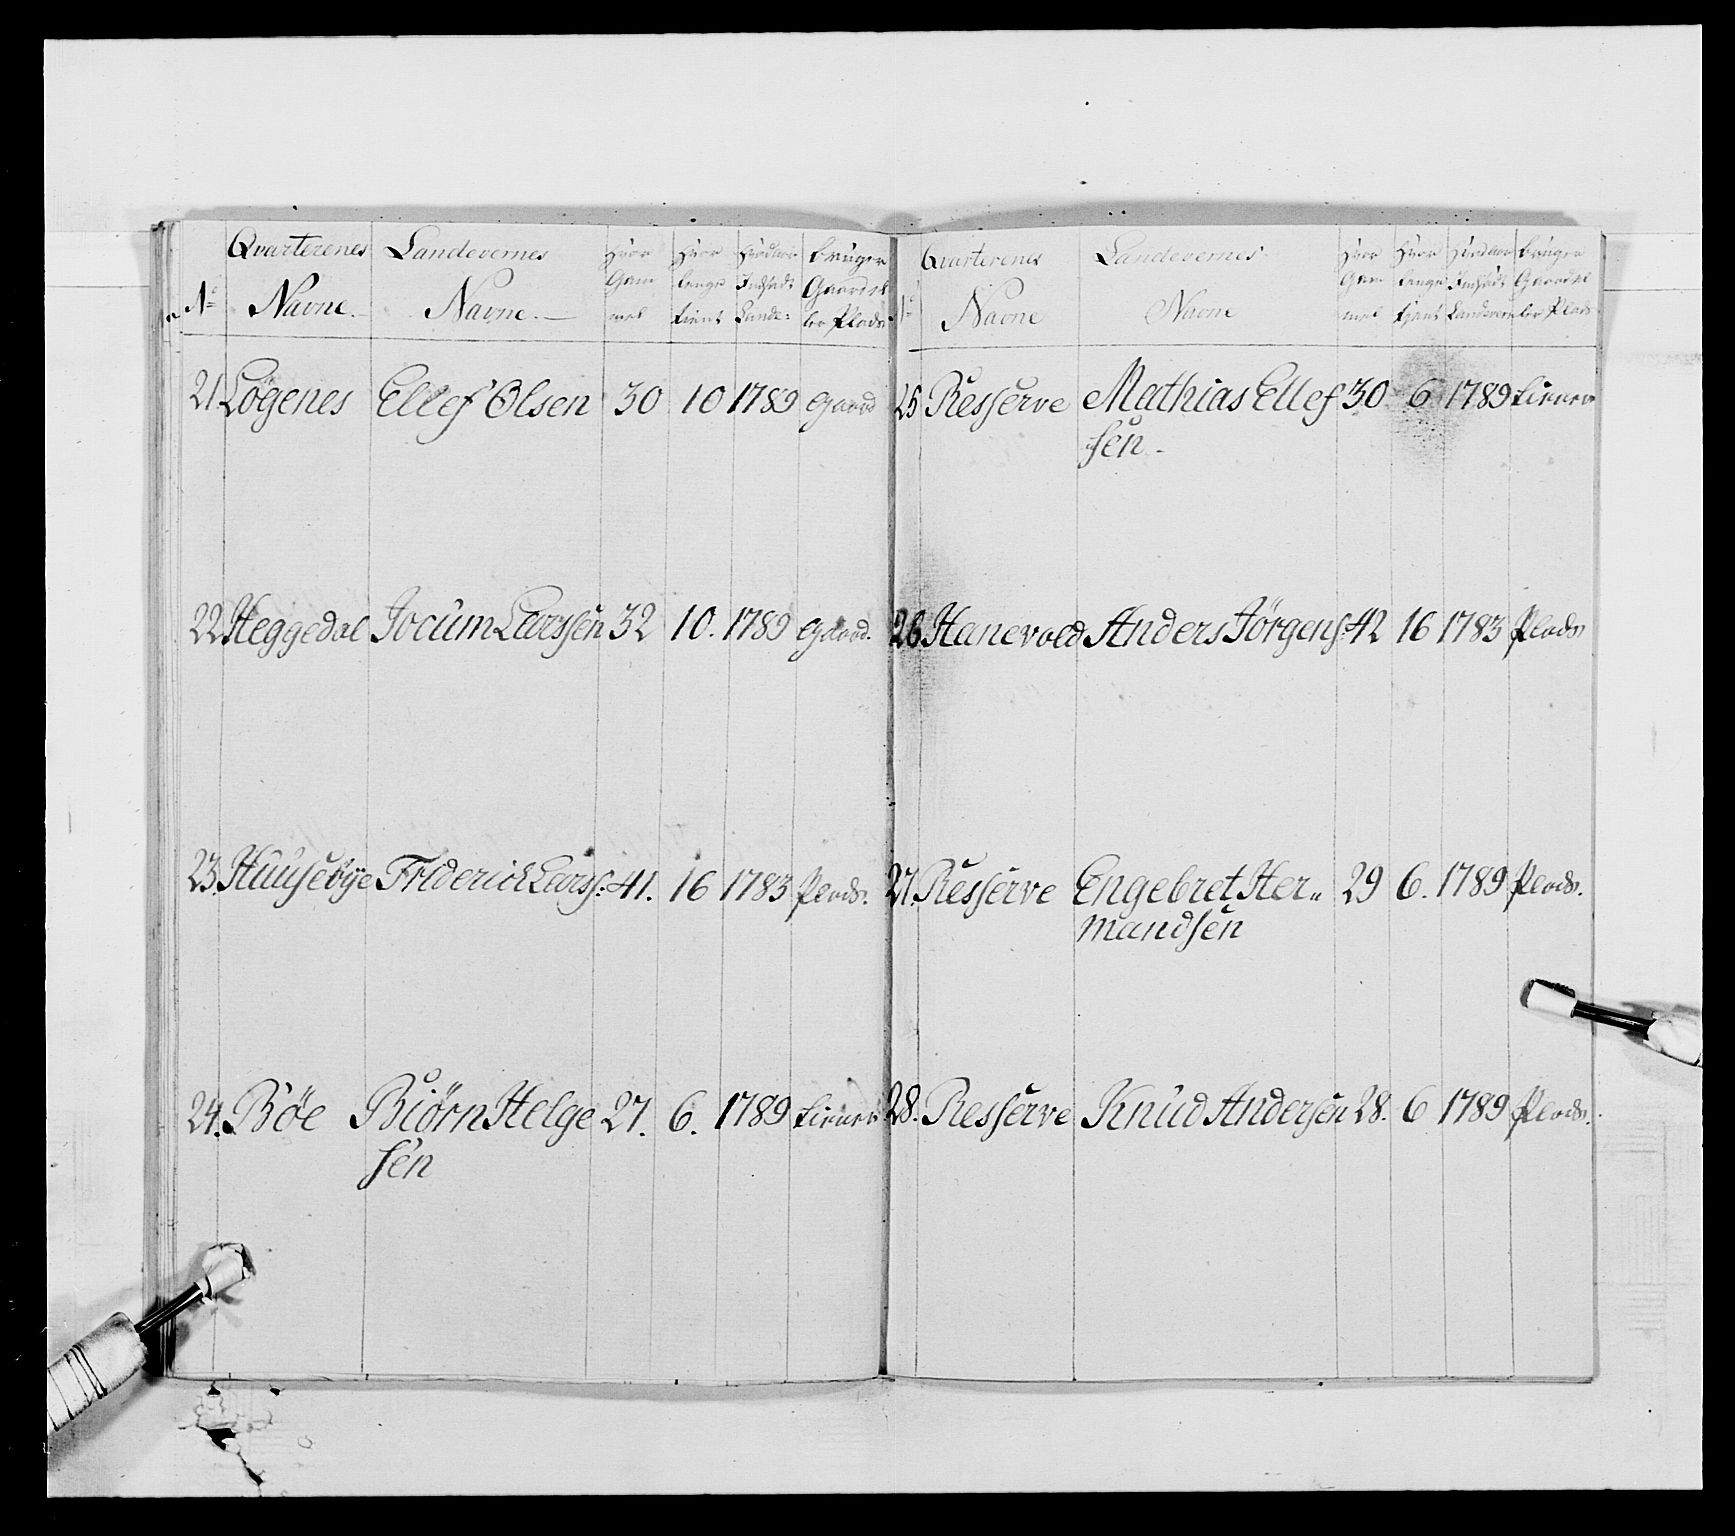 No Qvarterenes Navne. Landevernes Navne. Hvor Gammel Hvor lenge tient Hvad aar Indsadt Lande: bruger Gaard el ler Plads
21 Løgenes Ellef Olsen 30 10 1789 Gaard
22 Heggedal Jocum Larssen 32 10. 1789 Gaard.
23. Huusebye Friderich Larss: 41. 16 1783 Plads.
24. Bøe Biørn Helge 27. 6. 1789 tiener
sen
No Qvarterenes Navne Landevernes Navne Hvor Gammel Hvor lenge tjent Hvad aar Indsadt Landevern bruger Gaard el ler Plads
25 Resserve Mathias Ellef 30 6 1789 tiener
sen.
26. Hanevold Anders Jörgens: 42 16 1783 Plads
27. Resserve Engebret Her„ 29 6. 1789 Plads.
mandsen
28. Resserve Knud Andersen 28. 6 1789 Plads.